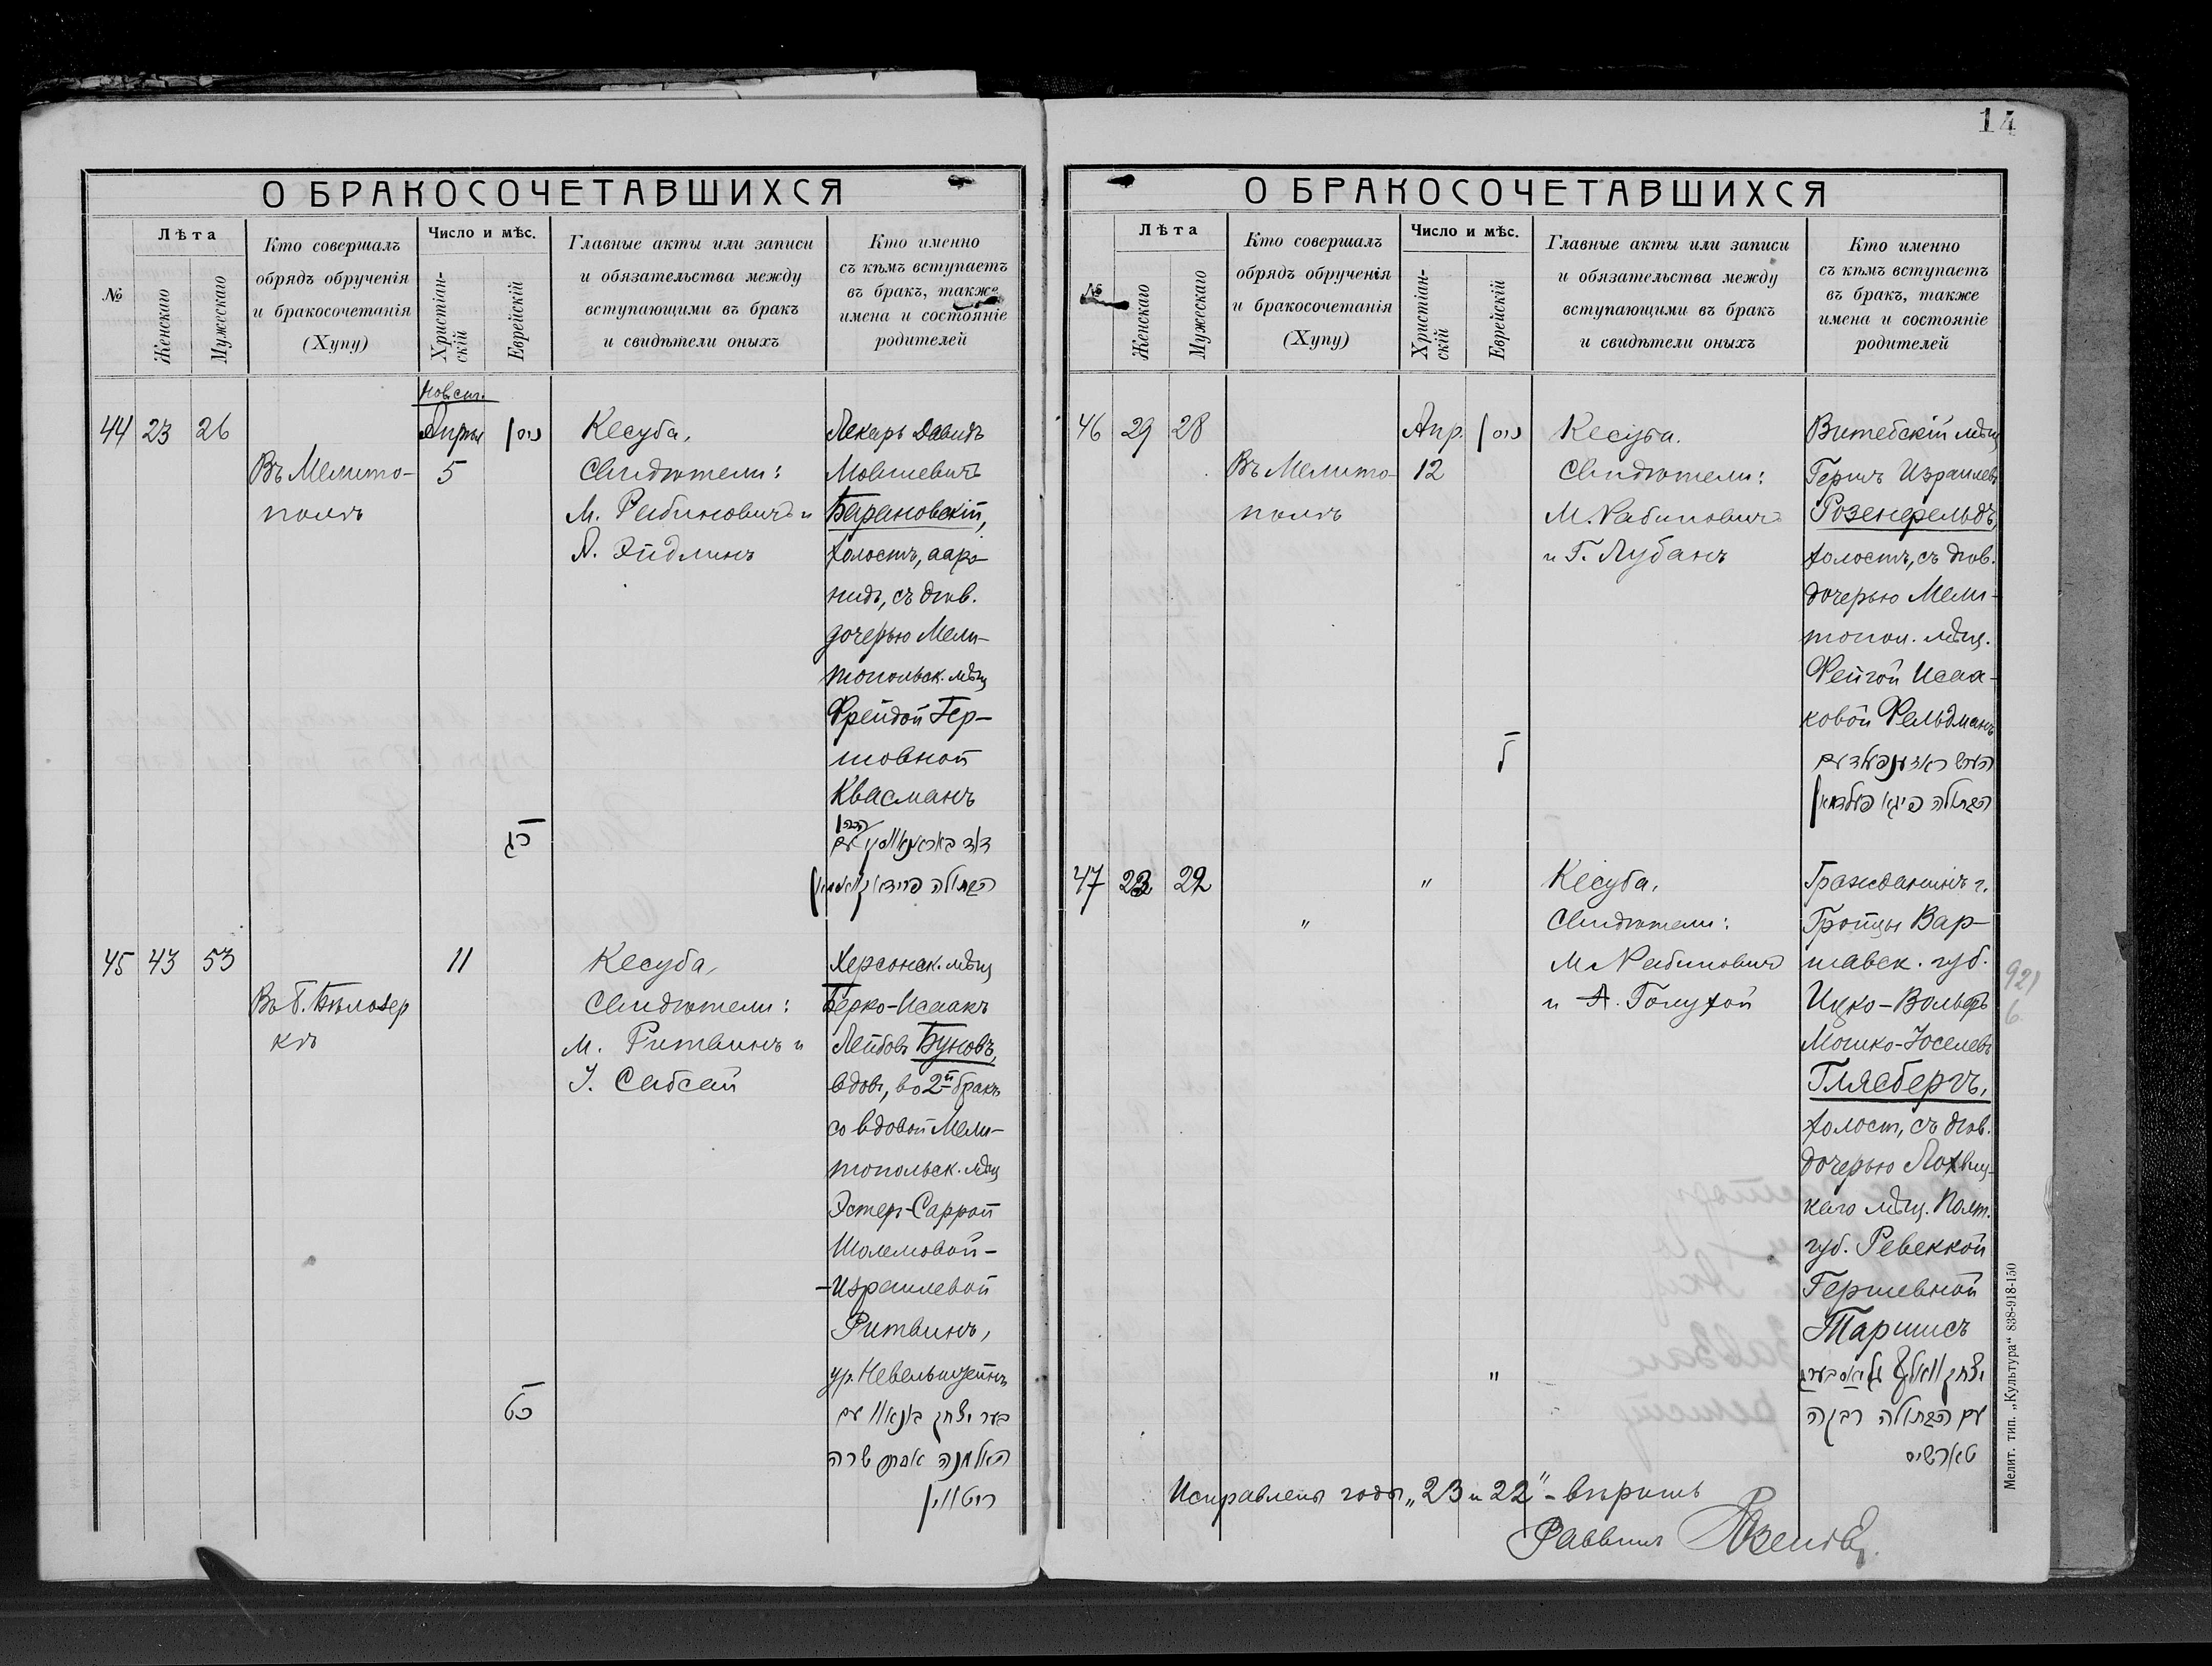 14
О БРАКОСОЧЕТАВШИХСЯ
№
Лѣта
Женскаго
Мужескаго
Кто совершалъ
обрядъ обрученія
и бракосочетанія
(Хупу)
Число и мѣс.
Христіан-
скій
Еврейскій
Главные акты или записи
и обязательства между
вступающими въ бракъ
и свидѣтели оныхъ
Кто именно
съ кѣмъ вступаетъ
въ бракъ, также
имена и состояніе
родителей
44 23 26
Въ Мелито-
полѣ
Нов. ст.
5
ניסן
כג
Кесуба,
Свидѣтели:
М. Рабиновичъ и
Эйдлинъ
Лекарь Давидъ
Мовшевичъ
Барановскій,
холостъ, ааро-
нидъ, съ дѣв.
дочерью Мели-
топольск. мѣщ
Фрейдой Гер-
шовной
Квасманъ
הכהן
עם
הבתולה
45 43 53
Въ Б. Бѣлозер
кѣ
11
כט
Кесуба,
Свидѣтели:
М. Ритвинъ и
Сабсай
Херсонск. мѣщ
Берко-Исаакъ
Лейбовъ Буновъ,
вдов., во 2й бракъ
со вдовой Мели-
топольск. мѣщ
Эстер-Саррой
Шолемовой-
-Израилевой
Ритвинъ,
ур. Невельштейнъ
בער יצחק עם
האלמנה אסתר שרה
ריטווין
О БРАКОСОЧЕТАВШИХСЯ
№
Лѣта
Женскаго
Мужескаго
Кто совершалъ
обрядъ обрученія
и бракосочетанія
(Хупу)
Число и мѣс.
Христіан-
скій
Еврейскій
Главные акты или записи
и обязательства между
вступающими въ бракъ
и свидѣтели оныхъ
Кто именно
съ кѣмъ вступаетъ
въ бракъ, также
имена и состояніе
родителей
46 29 28
Въ Мелито-
полѣ
Апр.
12
ניסן
ל
Кесуба.
Свидѣтели:
М. Рабиновичъ
и Г. Лубанъ
Витебскій мѣщ
Гершъ Израилевъ
Розенфельдъ,
холостъ, съ дѣв.
дочерью Мели-
топол. мѣщ.
Фейгой Исаа-
ковой Фельдманъ
הירש ראזענפעלד עם
הבתולה פייגא פעלדמאן
47 23 22
"
"
"
Кесуба.
Свидѣтели:
М. Рабиновичъ
и А. Голухой
Гражданинъ г.
Гройцы Вар-
шавск. губ.
Ицко-Вольфъ
Мошко-Юселевъ
Глясбергъ,
холост, съ дѣв.
дочерью Лохвиц-
каго мѣщ. Полт.
губ. Ревеккой
Гершевной
Таршисъ
יצחק וואלף גליאסבערג
עם הבתולה רבקה
טארשיס
Исправлены годы „23 и 22" – вѣрить
Раввинъ
921
6
Мелит. тип. „Культура" 838-918-150